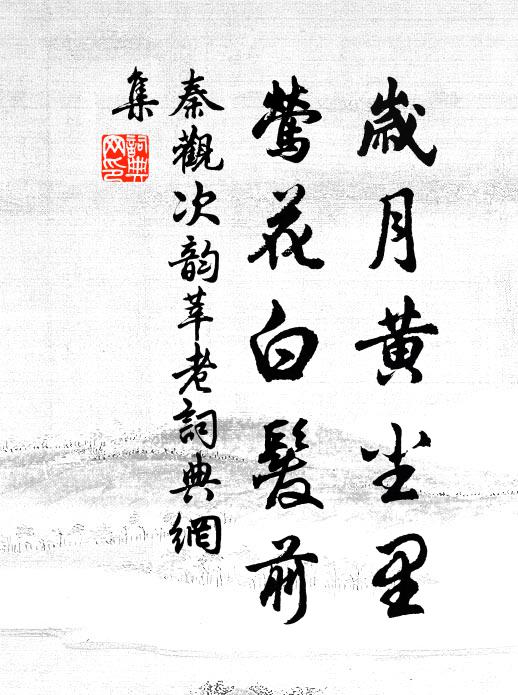 歲月黄尘里
鶯花白髮前
秦觀次韵莘老詞典網
集
詞典
网印